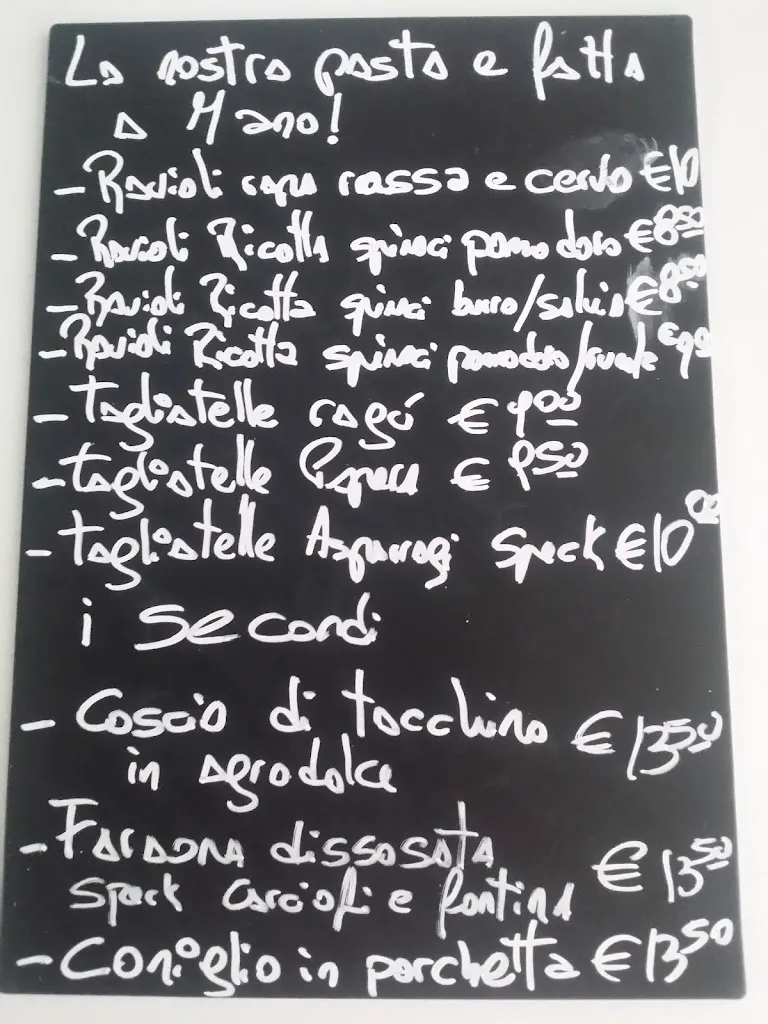 La nostra pasta e fatta
a Mano!
- Ravioli rapa rossa e cervo €10
- Ravioli Ricotta spinaci pomodoro €8,50
- Ravioli Ricotta spinaci burro/salvia €8,50
- Ravioli Ricotta spinaci pomodoro/rucola €9
- Tagliatelle ragó € 9 00
- Tagliatelle € 9 50
- Tagliatelle Asparagi Speck €10 00
i Secondi
- Coscia di tacchino € 13 50
in agrodolce
- Faraona dissosata
speck carciofi e fontina € 13 50
- Coniglio in porchetta € 13 50